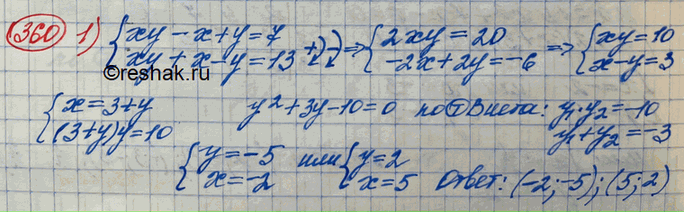 360 1) { xy - x + y = 7 ; xy + x - y = 13 +) -) ⇒ { 2xy = 20 ; -2x + 2y = -6 ⇒ { xy = 10 ; x - y = 3
©reshak.ru
{ x = 3 + y ; (3 + y)y = 10 y² + 3y - 10 = 0 по Т Виета: y₁·y₂ = -10 ; y₁ + y₂ = -3
{ y = -5 ; x = -2 или { y = 2 ; x = 5 Ответ: (-2; -5); (5; 2)